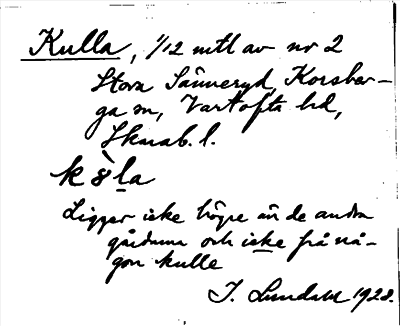 Kulla, 1/12 mtl av nr 2
Stora Sänneryd, Korsber-
ga sn, Vartofta hd,
Skarab. l.
Ligger icke högre än de andra
gårdarna och icke från nå-
gon kulle
I. Lundahl 1928.